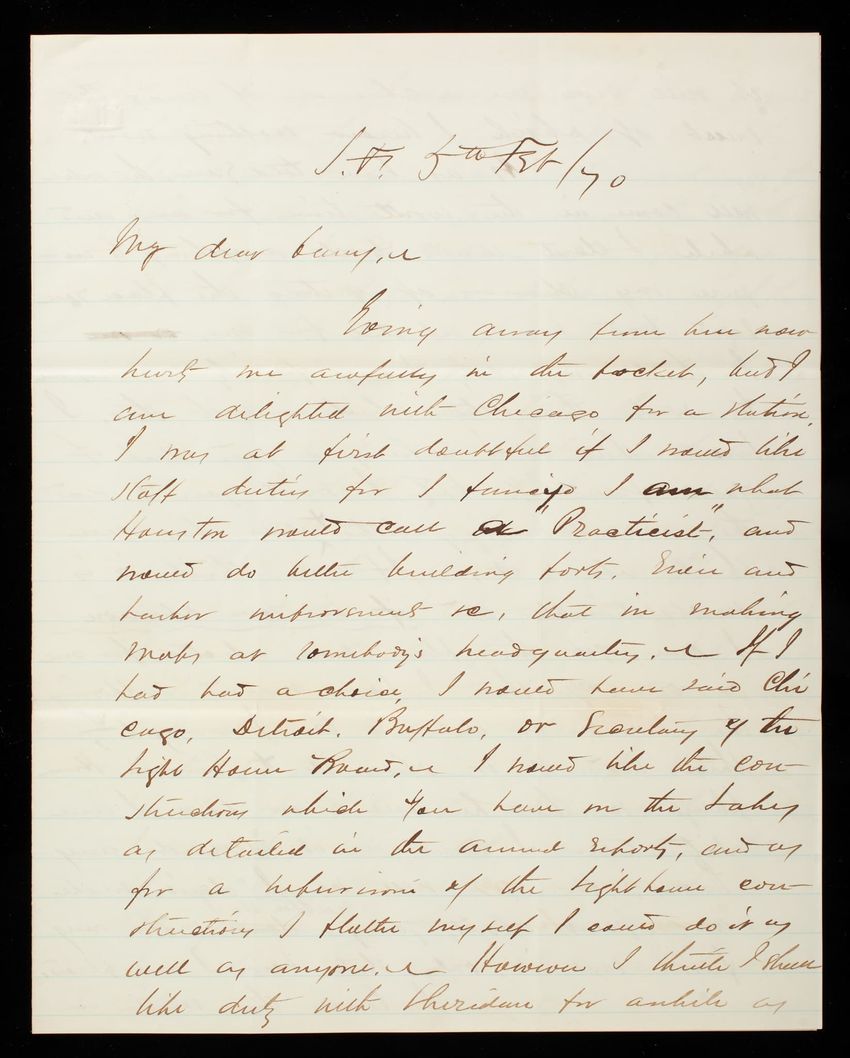 S.F. 5th Feb/70
My dear Casey, ~
Going away from here now
hurts me awfully in the pocket, but I
am delighted with Chicago for a station.
I was at first doubtful if I would like
staff duties for I fancy I am what
Houston would call a "Practicist", and
would do better building forts, River and
harbor improvement &c, that in making
maps at somebody's headquarters. ~ If I
had had a choice, I would have said Chi
cago, Detroit, Buffalo, or Secretary of the
Light House Board, ~ I would like the con-
structions which you have on the Lakes
as detailed in the annual reports, and as
for a supervision of the lighthouse con-
structions I flatter myself I could do it as
well as anyone. ~ However I think I shall
like duty with Sheridan for awhile as